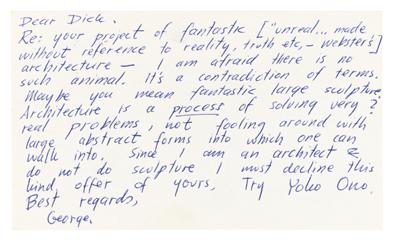 Dear Dick.
Re: your project of fantastic ["unreal... made
without reference to reality, truth etc, – webster's]
architecture — I am afraid there is no
such animal. It's a contradiction of terms.
Maybe you mean fantastic large sculpture?
Architecture is a process of solving very
real problems, not fooling around with
large abstract forms into which one can
walk into. Since I am an architect &
do not do sculpture I must decline this
kind offer of yours. Try Yoko Ono.
Best regards,
George.